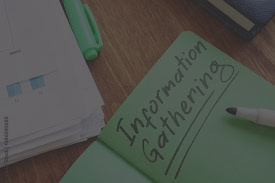 Information
Gathering